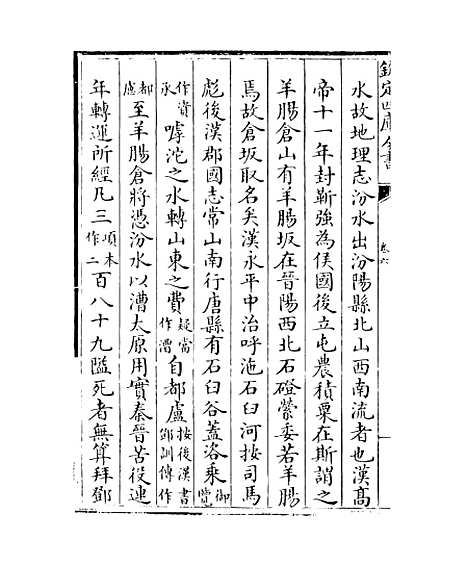 欽定四庫全書
卷六
水故地理志汾水出汾陽縣北山西南流者也漢髙
帝十一年封靳強為侯國後立屯農積粟在斯謂之
羊腸倉山有羊腸坂在晉陽西北石磴縈委若羊腸
焉故倉坂取名矣漢永平中治呼沲石臼河按司馬
彪後漢郡國志常山南行唐縣有石臼谷葢洛乗御覽
作資承嘑沱之水轉山東之費疑當作漕自都盧按後漢書鄧訓傳作
都慮至羊腸倉將憑汾水以漕太原用實秦晉苦役連
年轉運所經凡三項本作二百八十九隘死者無算拜鄧